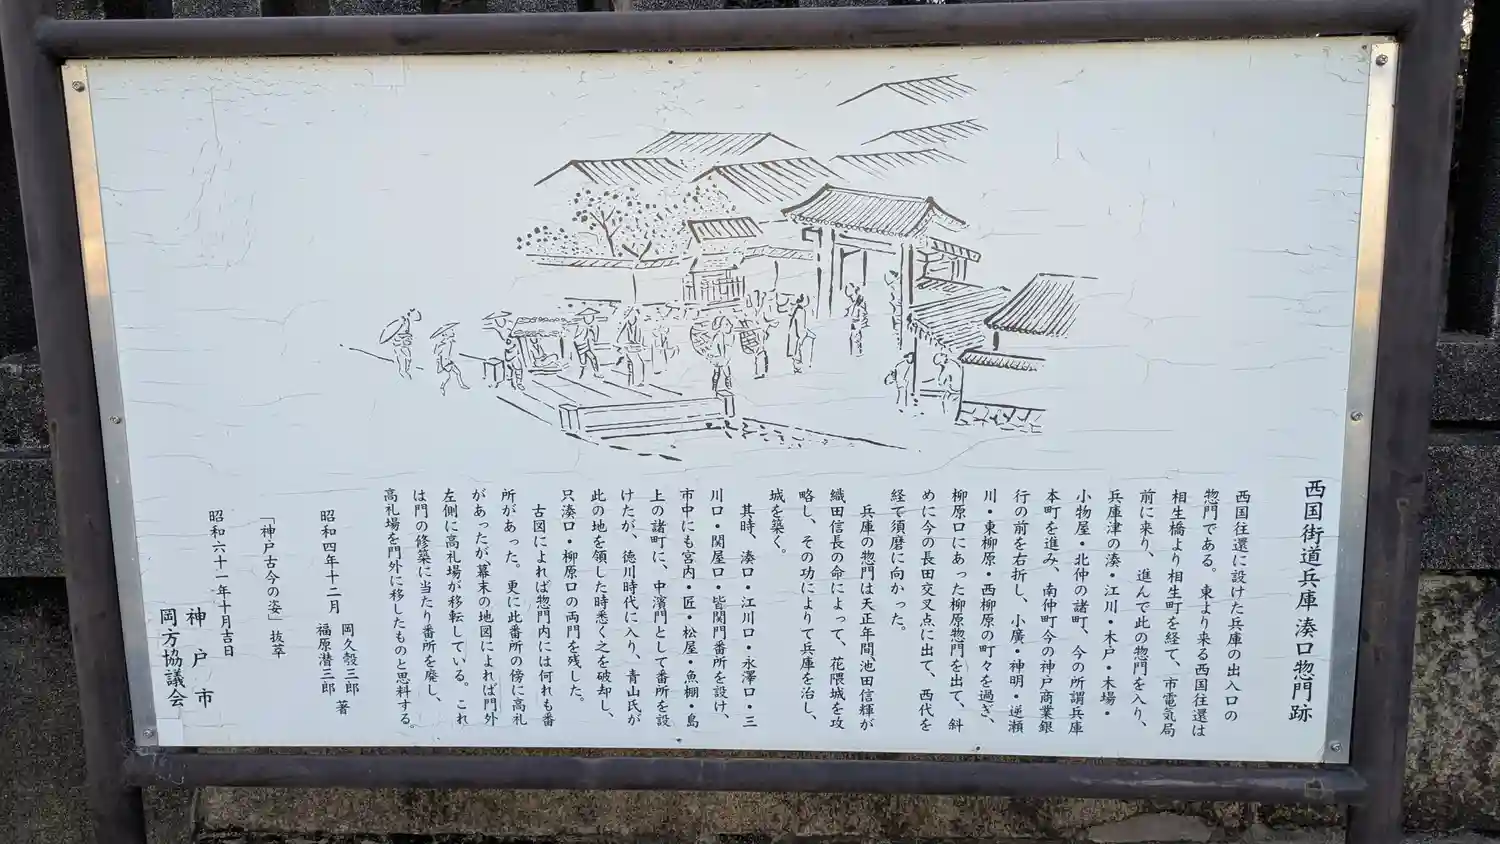 西国街道兵庫湊口惣門跡
西国往還に設けた兵庫の出入口の
惣門である。東より来る西国往還は
相生橋より相生町を経て、市電気局
前に来り、進んで此の惣門を入り、
兵庫津の湊・江川・木戸・木場・
小物屋・北仲の諸町、今の所謂兵庫
本町を進み、南仲町今の神戸商業銀
行の前を右折し、小廣・神明・逆瀬
川・東柳原・西柳原の町々を過ぎ、
柳原口にあった柳原惣門を出て、斜
めに今の長田交叉点に出て、西代を
経て須磨に向かった。
兵庫の惣門は天正年間池田信輝が
織田信長の命によって、花隈城を攻
略し、その功によりて兵庫を治し、
城を築く。
其時、湊口・江川口・永澤口・三
川口・関屋口・皆関門番所を設け、
市中にも宮内・匠・松屋・魚棚・島
上の諸町に、中濱門として番所を設
けたが、徳川時代に入り、青山氏が
此の地を領した時悉く之を破却し、
只湊口・柳原口の両門を残した。
古図によれば惣門内には何れも番
所があった。更に此番所の傍に高札
があったが、幕末の地図によれば門外
左側に高札場が移転している。これ
は門の修築に当たり番所を廃し、
高札場を門外に移したものと思料する。
昭和四年十二月 岡久殼三郎 著
福原潜三郎
「神戸古今の姿」抜萃
昭和六十一年十月吉日
神戸市
岡方協議会